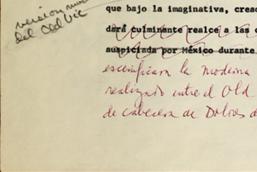 versión
del Old Vic
que bajo la imaginativa, creac
dará culminante realce a las c
auspiciada por México durante
escenificaron la moderna
realizado entre el Old
de cabecera de Dolores d